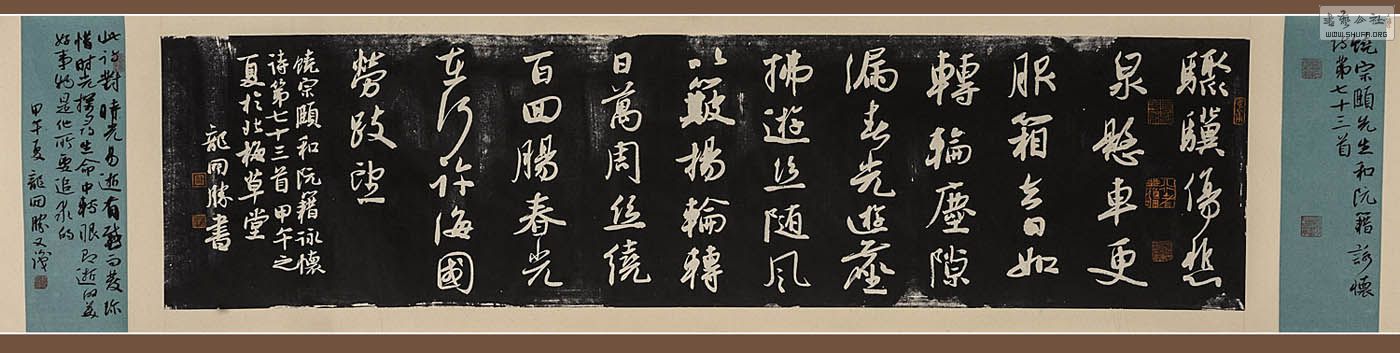 書藝公社
WWW.SHUFA.ORG
饒宗頤先生和阮籍詠懷
詩第七十三首
驥傷悲
泉懸車更
服箱去日如
轉輪塵隙
漏春光遊塵
拂遊絲随风
以簸揚輪轉
日萬周丝繞
百回腸春光
在何許海國
勞跂望
饒宗頤和阮籍詠懷
诗第七十三首甲午之
夏於北梅草堂
龍開勝書
此詩對時光易逝有感而發珍
惜时光探尋生命中转眼即逝的美
好事物是他所要追求的
甲午夏 龍開勝又識